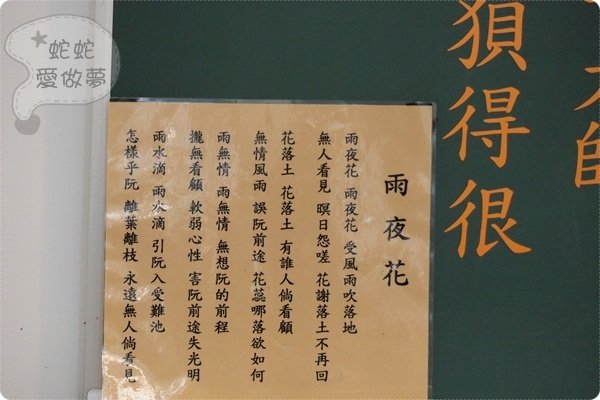 蛇蛇
愛做夢
師
狽得很
雨夜花
雨夜花 雨夜花 受風雨吹落地
無人看見 暝日怨嗟 花謝落土不再回
花落土 花落土 有誰人倘看顧
無情風雨 誤阮前途 花蕊哪落欲如何
雨無情 雨無情 無想阮的前程
攏無看顧 軟弱心性 害阮前途失光明
雨水滴 雨水滴 引阮入受難池
怎樣乎阮 離葉離枝 永遠無人倘看見